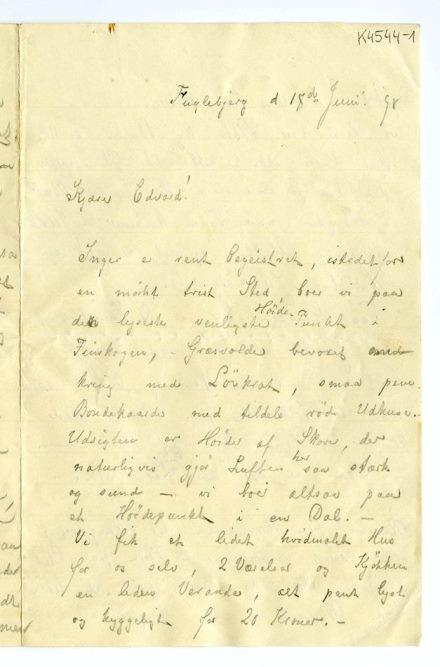 K4544-1
Fuglebjerg d 18de Juni 98
Kjære Edvard!
Inger er rent begeistret, istedetfor
en mörkt trist Sted boer vi paa
det lyseste venligste Höide-Punkt i
Finskogen, - Græsvolde bevoxet
kring med Lövkrat, smaa pene
Bondegaarde med tildels röde Udhuse. -
Udsigten er Höider af Skove, der
naturligvis gjör Luften her saa stærk
og sund - vi boer altsaa paa
et Höidepunkt i en Dal. -
Vi fik et lidet hvidmalet Hus
for os selv, 2 Værelser og Kjökken
en liden Veranda, alt pent lyst
og hyggeligt for 20 Kroner. -